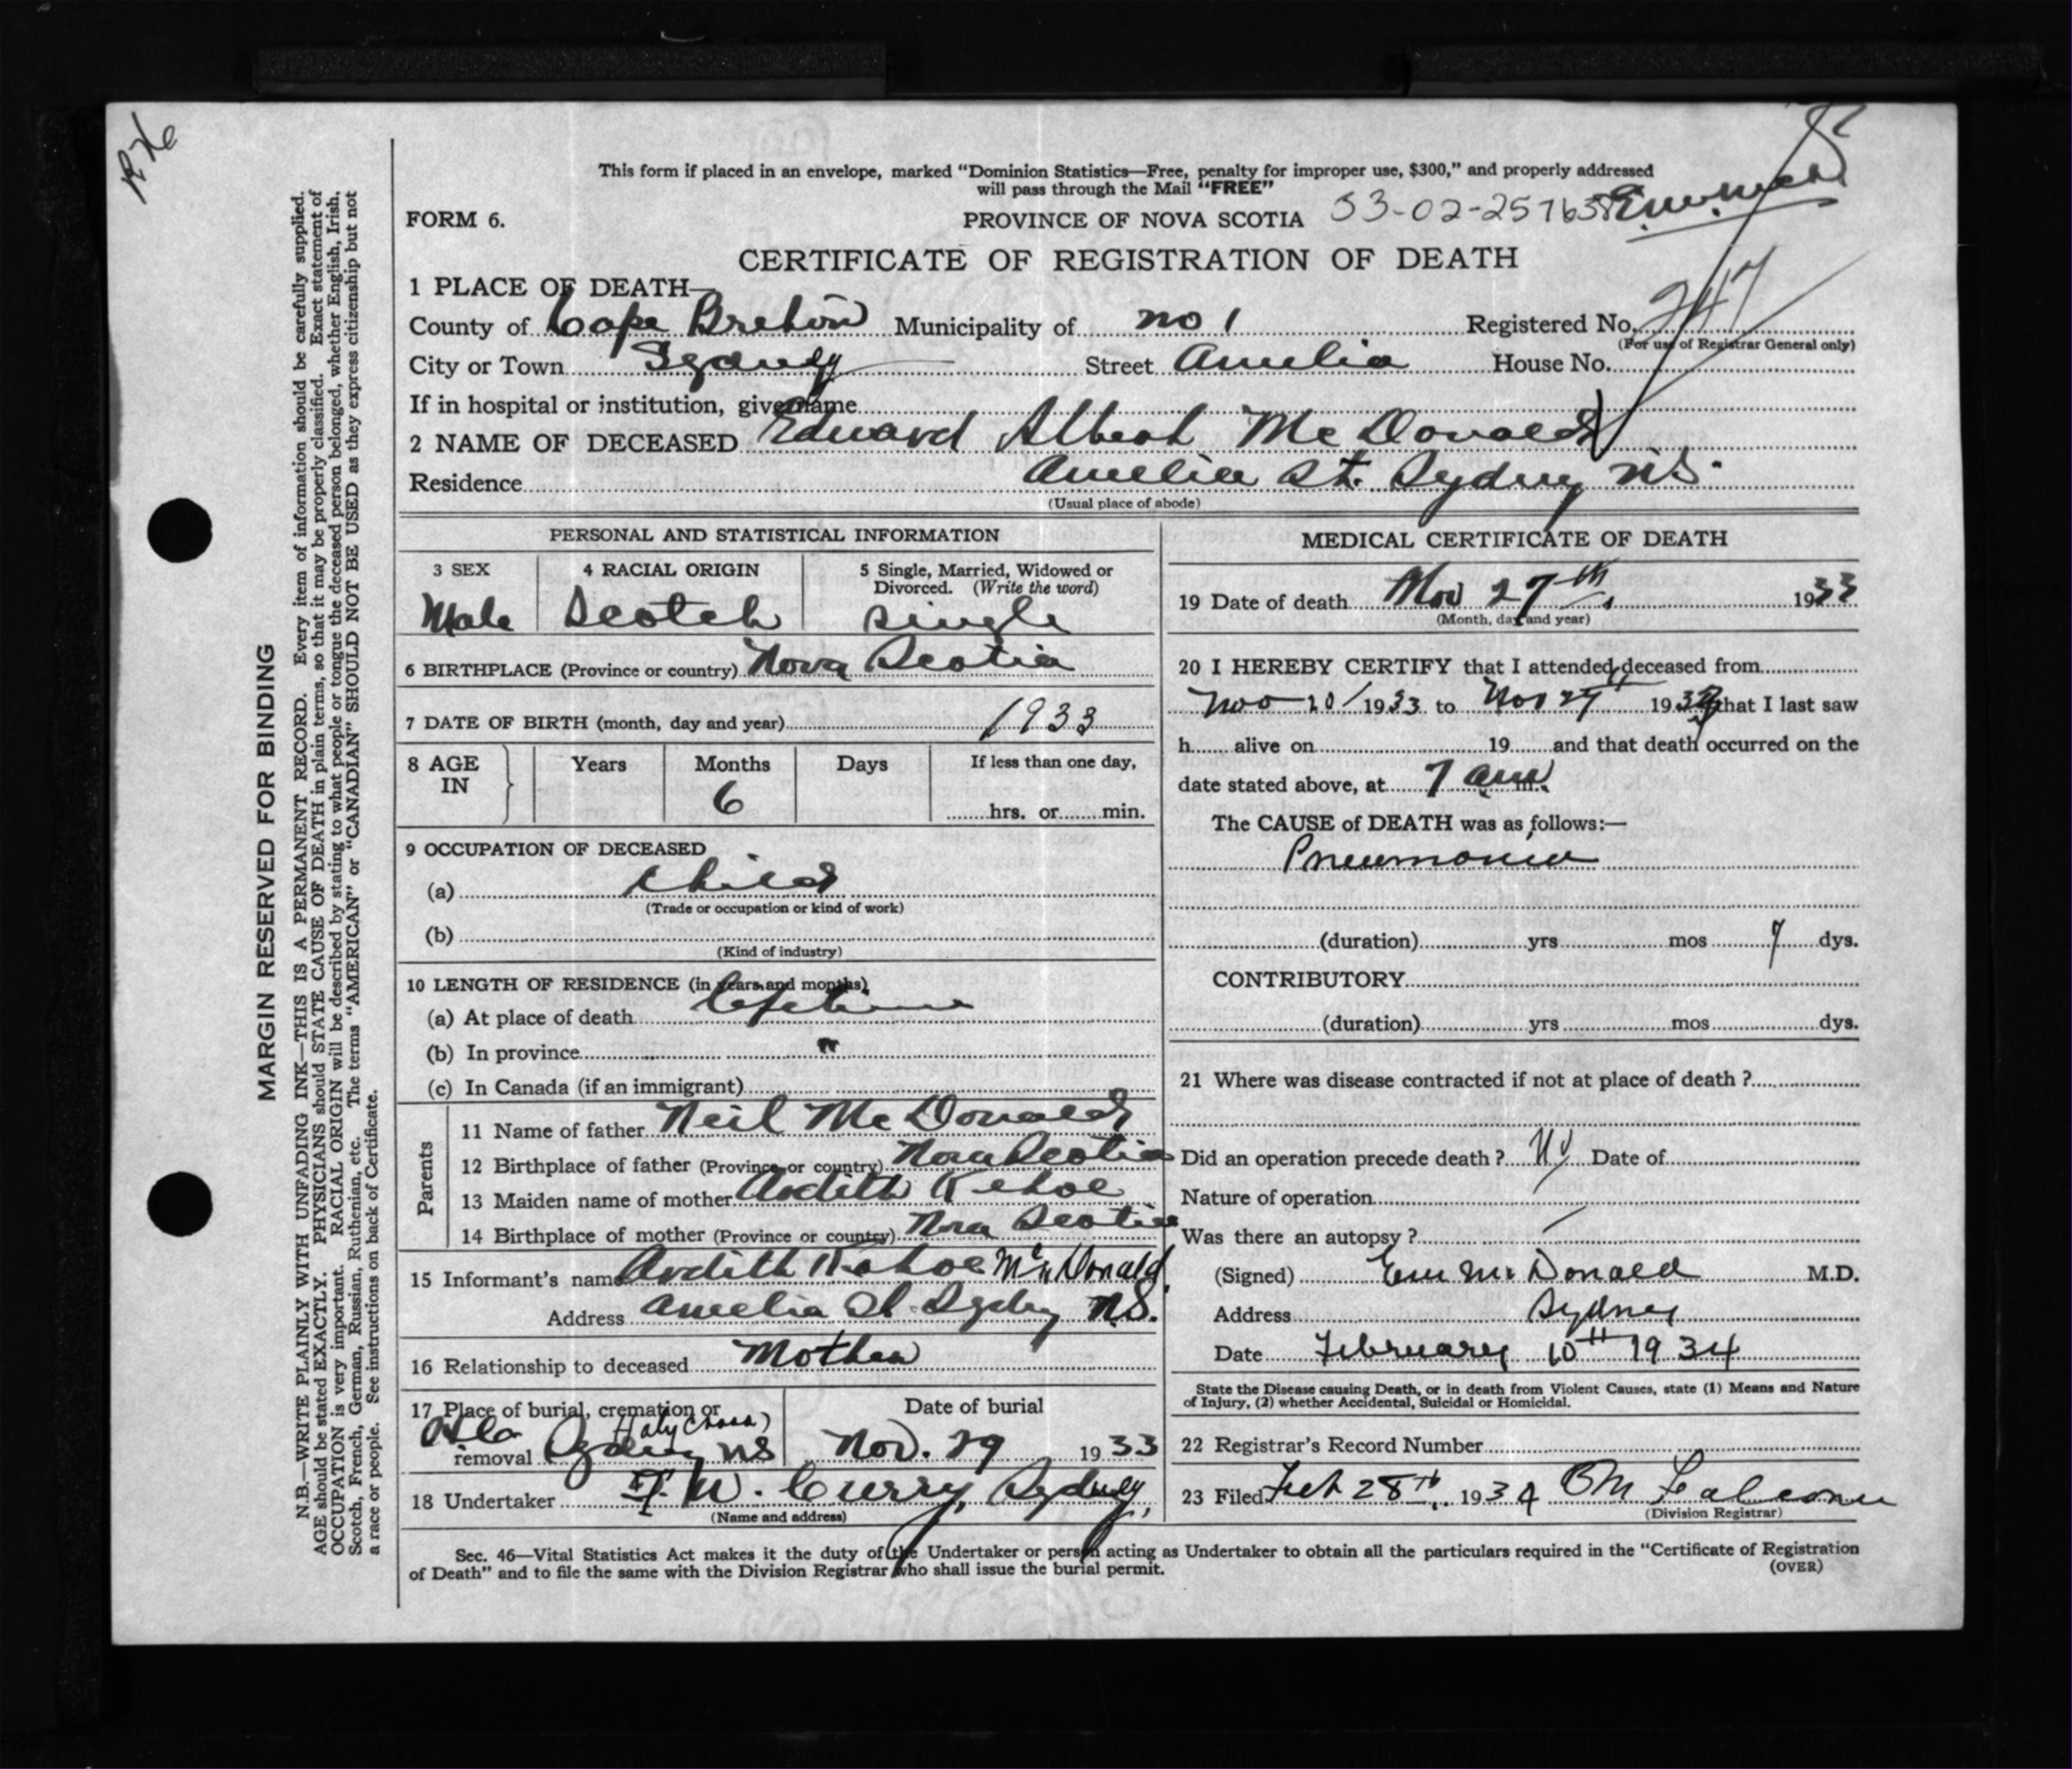 This form if placed in an envelope, marked "Dominion Statistics—Free, penalty for improper use, $300," and properly addressed
will pass through the Mail "FREE"
FORM 6.
PROVINCE OF NOVA SCOTIA
CERTIFICATE OF REGISTRATION OF DEATH
1 PLACE OF DEATH—
County of Cape Breton Municipality of no 1 Registered No. 247
(For use of Registrar General only)
City or Town Sydney Street Amelia House No.
If in hospital or institution, give name
2 NAME OF DECEASED Edward Albert McDonald
Residence Amelia St. Sydney N.S.
(Usual place of abode)
PERSONAL AND STATISTICAL INFORMATION
3 SEX 4 RACIAL ORIGIN 5 Single, Married, Widowed or
Divorced. (Write the word)
Male Scotch Single
6 BIRTHPLACE (Province or country) Nova Scotia
7 DATE OF BIRTH (month, day and year) 1933
8 AGE IN Years Months Days If less than one day,
6 hrs. or min.
9 OCCUPATION OF DECEASED
(a) child
(Trade or occupation or kind of work)
(b)
(Kind of industry)
10 LENGTH OF RESIDENCE (in years and months)
(a) At place of death Lifetime
(b) In province "
(c) In Canada (if an immigrant)
Parents
11 Name of father Neil McDonald
12 Birthplace of father (Province or country) Nova Scotia
13 Maiden name of mother Ardith Kehoe
14 Birthplace of mother (Province or country) Nova Scotia
15 Informant's name Ardith Kehoe McDonald
Address Amelia St. Sydney N.S.
16 Relationship to deceased Mother
17 Place of burial, cremation or Date of burial
removal Sydney NS (Holy Cross) Nov. 29 1933
18 Undertaker F. W. Curry, Sydney,
(Name and address)
MEDICAL CERTIFICATE OF DEATH
19 Date of death Nov 27th 1933
(Month, day and year)
20 I HEREBY CERTIFY that I attended deceased from
Nov 20 1933 to Nov 27th 1933 that I last saw
h alive on 19 and that death occurred on the
date stated above, at 7 am m.
The CAUSE of DEATH was as follows:—
Pneumonia
(duration) yrs mos 7 dys.
CONTRIBUTORY
(duration) yrs mos dys.
21 Where was disease contracted if not at place of death ?
Did an operation precede death ? No Date of
Nature of operation
Was there an autopsy ?
(Signed) Ew McDonald M.D.
Address Sydney
Date February 10th 1934
State the Disease causing Death, or in death from Violent Causes, state (1) Means and Nature
of Injury, (2) whether Accidental, Suicidal or Homicidal.
22 Registrar's Record Number
23 Filed Feb 28th 1934
(Division Registrar)
Sec. 46—Vital Statistics Act makes it the duty of the Undertaker or person acting as Undertaker to obtain all the particulars required in the "Certificate of Registration
of Death" and to file the same with the Division Registrar who shall issue the burial permit.
(OVER)
MARGIN RESERVED FOR BINDING
N.B.—WRITE PLAINLY WITH UNFADING INK—THIS IS A PERMANENT RECORD. Every item of information should be carefully supplied.
AGE should be stated EXACTLY. PHYSICIANS should STATE CAUSE OF DEATH in plain terms, so that it may be properly classified. Exact statement of
OCCUPATION is very important. RACIAL ORIGIN will be described by stating to what people or tongue the deceased person belonged, whether English, Irish,
Scotch, French, German, Russian, Ruthenian, etc. The terms "AMERICAN" or "CANADIAN" SHOULD NOT BE USED as they express citizenship but not
a race or people. See instructions on back of Certificate.